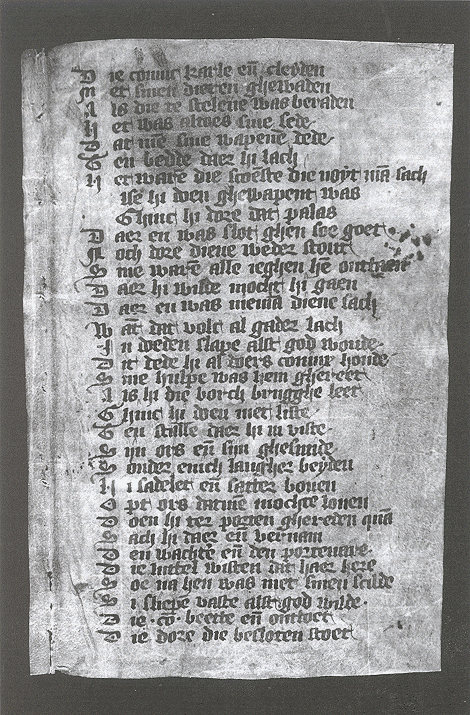 D ie coninc karle en̄ cleden
M et sinen dieren ghewaden
A ls die te stelene was beraden
H et was altoes sine sede
D at mē sine wapenē dede
B en bedde daer hi lach
H et warē die scoēste die noyt mā sach
Alse hi doen ghewapent was
Ghinc hi dore dat palas
D aer en was slot ghen soe goet
N och dore diene weder stont
S ine warē alle ieghen hē ontdaen
D aer hi wiste mocht hi gaen
D aer en was niemā diene sach
W āt dat volc al gader lach
I n slape alst god woude
D it dede hi al doers conincs houde
S ine hulpe was hem ghereet
A ls hi die borch brugghe leet
G hinc hi doen met liste
E en stille daer hi in viste
S ijn ors en̄ sijn ghesmide
S onder enich langher beyden
H i sadelet en̄ satter bouen
O pt ors datmē mochte louen
D oen hi ter porten ghereden quā
S ach hi daer en̄ vernam
D en wachte en̄ den portenare
D ie luttel wisten dat haer here
S oe na hen was met sinen scilde
S i sliepe vaste alst god wilde
D ie .co. beette en̄ ontsloet
D ie dore die besloten stoet